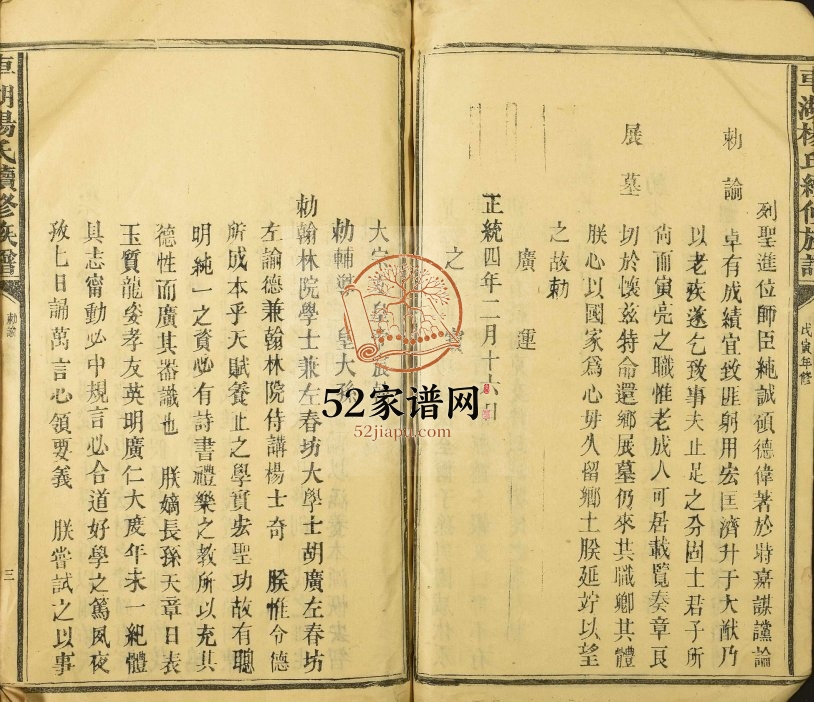 車湖楊氏續修族譜
戊寅年修
列聖進位師臣純誠碩德偉著於時嘉謀讜論
卓有成績宜致匪躬用宏匡濟升于大猷乃
勅諭
以老疾遂乞致事夫止足之分固士君子所
尚而寅亮之職惟老成人可居載覽奏章良
展墓
切於懷兹特命還鄉展墓仍來其職卿其體
朕心以國家爲心毋久留鄉土朕延竚以望
之故勅
廣運
正統四年二月十六日
之寶
大宗
皇
勅輔導 皇大孫
勅翰林院學士兼左春坊大學士胡廣左春坊
左諭德兼翰林院侍講楊士奇 朕惟令德
所成本乎天賦養正之學實宏聖功故有聰
明純一之資必有詩書禮樂之教所以充其
德性而廣其器識也 朕嫡長孫天章日表
玉質龍姿孝友英明廣仁大度年未一紀體
具志甯動必中規言必合道好學之篤夙夜
孜七日誦萬言心領要義 朕嘗試之以事
車湖楊氏續修族譜
勅諭
三
52家谱网
52jiapu.com